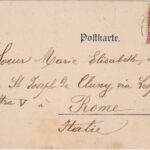 Postkarte.
Soeur Marie Elisabeth
St Joseph de Cluny via
V à
Rome
Italie